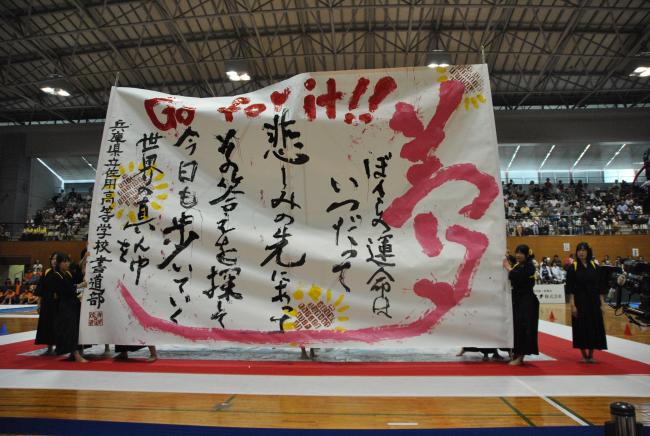 Go for it!!
夢
ぼくらの運命は
いつだって
悲しみの先にあって
その答えを探して
今日も歩いていく
世界の真ん中を
兵庫県立佐用高等学校書道部